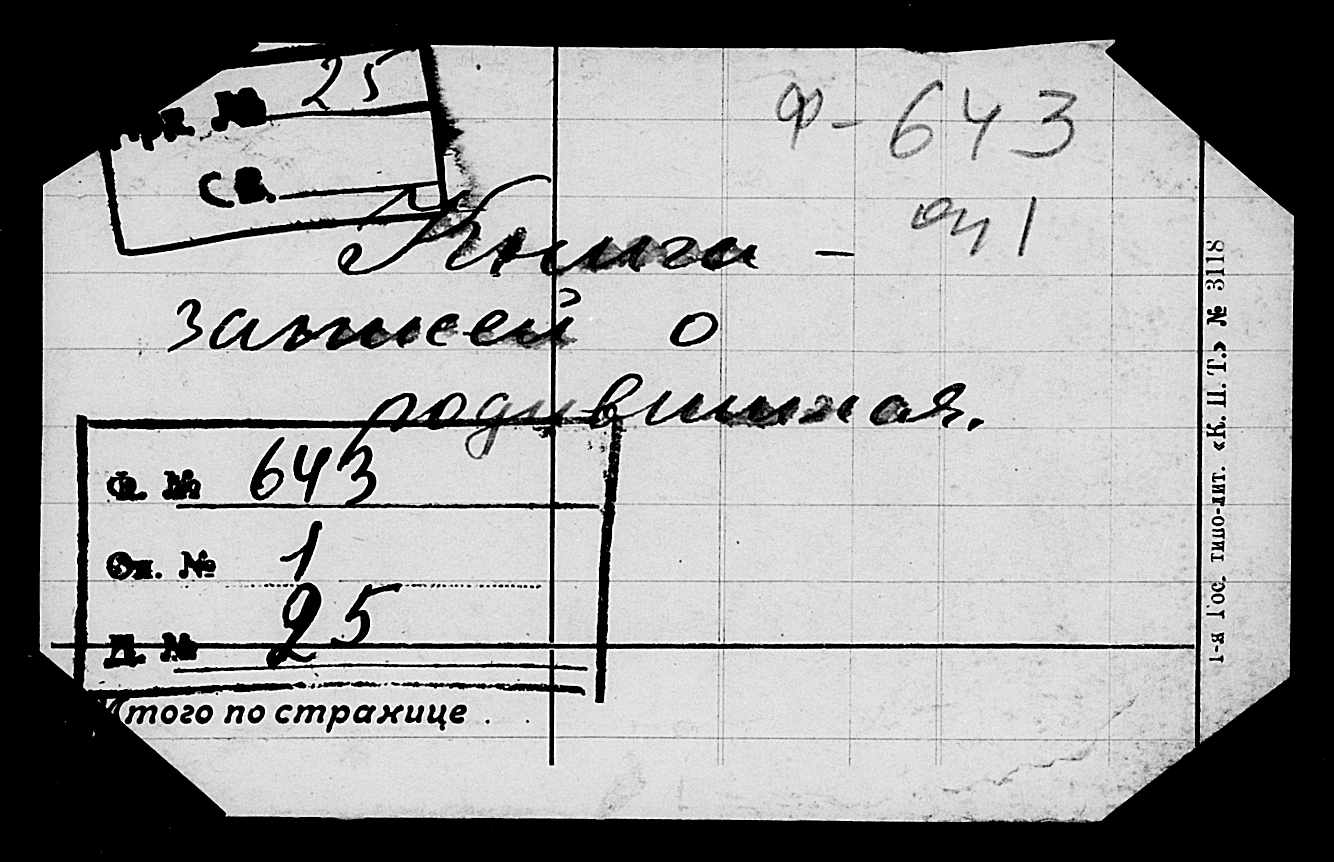 № 25
св.
Ф-643
оп 1
Книга -
записей о
родившихся.
Ф. № 643
Оп. № 1
Д. № 25
Итого по странице . .
1-я Гос. типо-лит. «К. П. Т.» № 3118